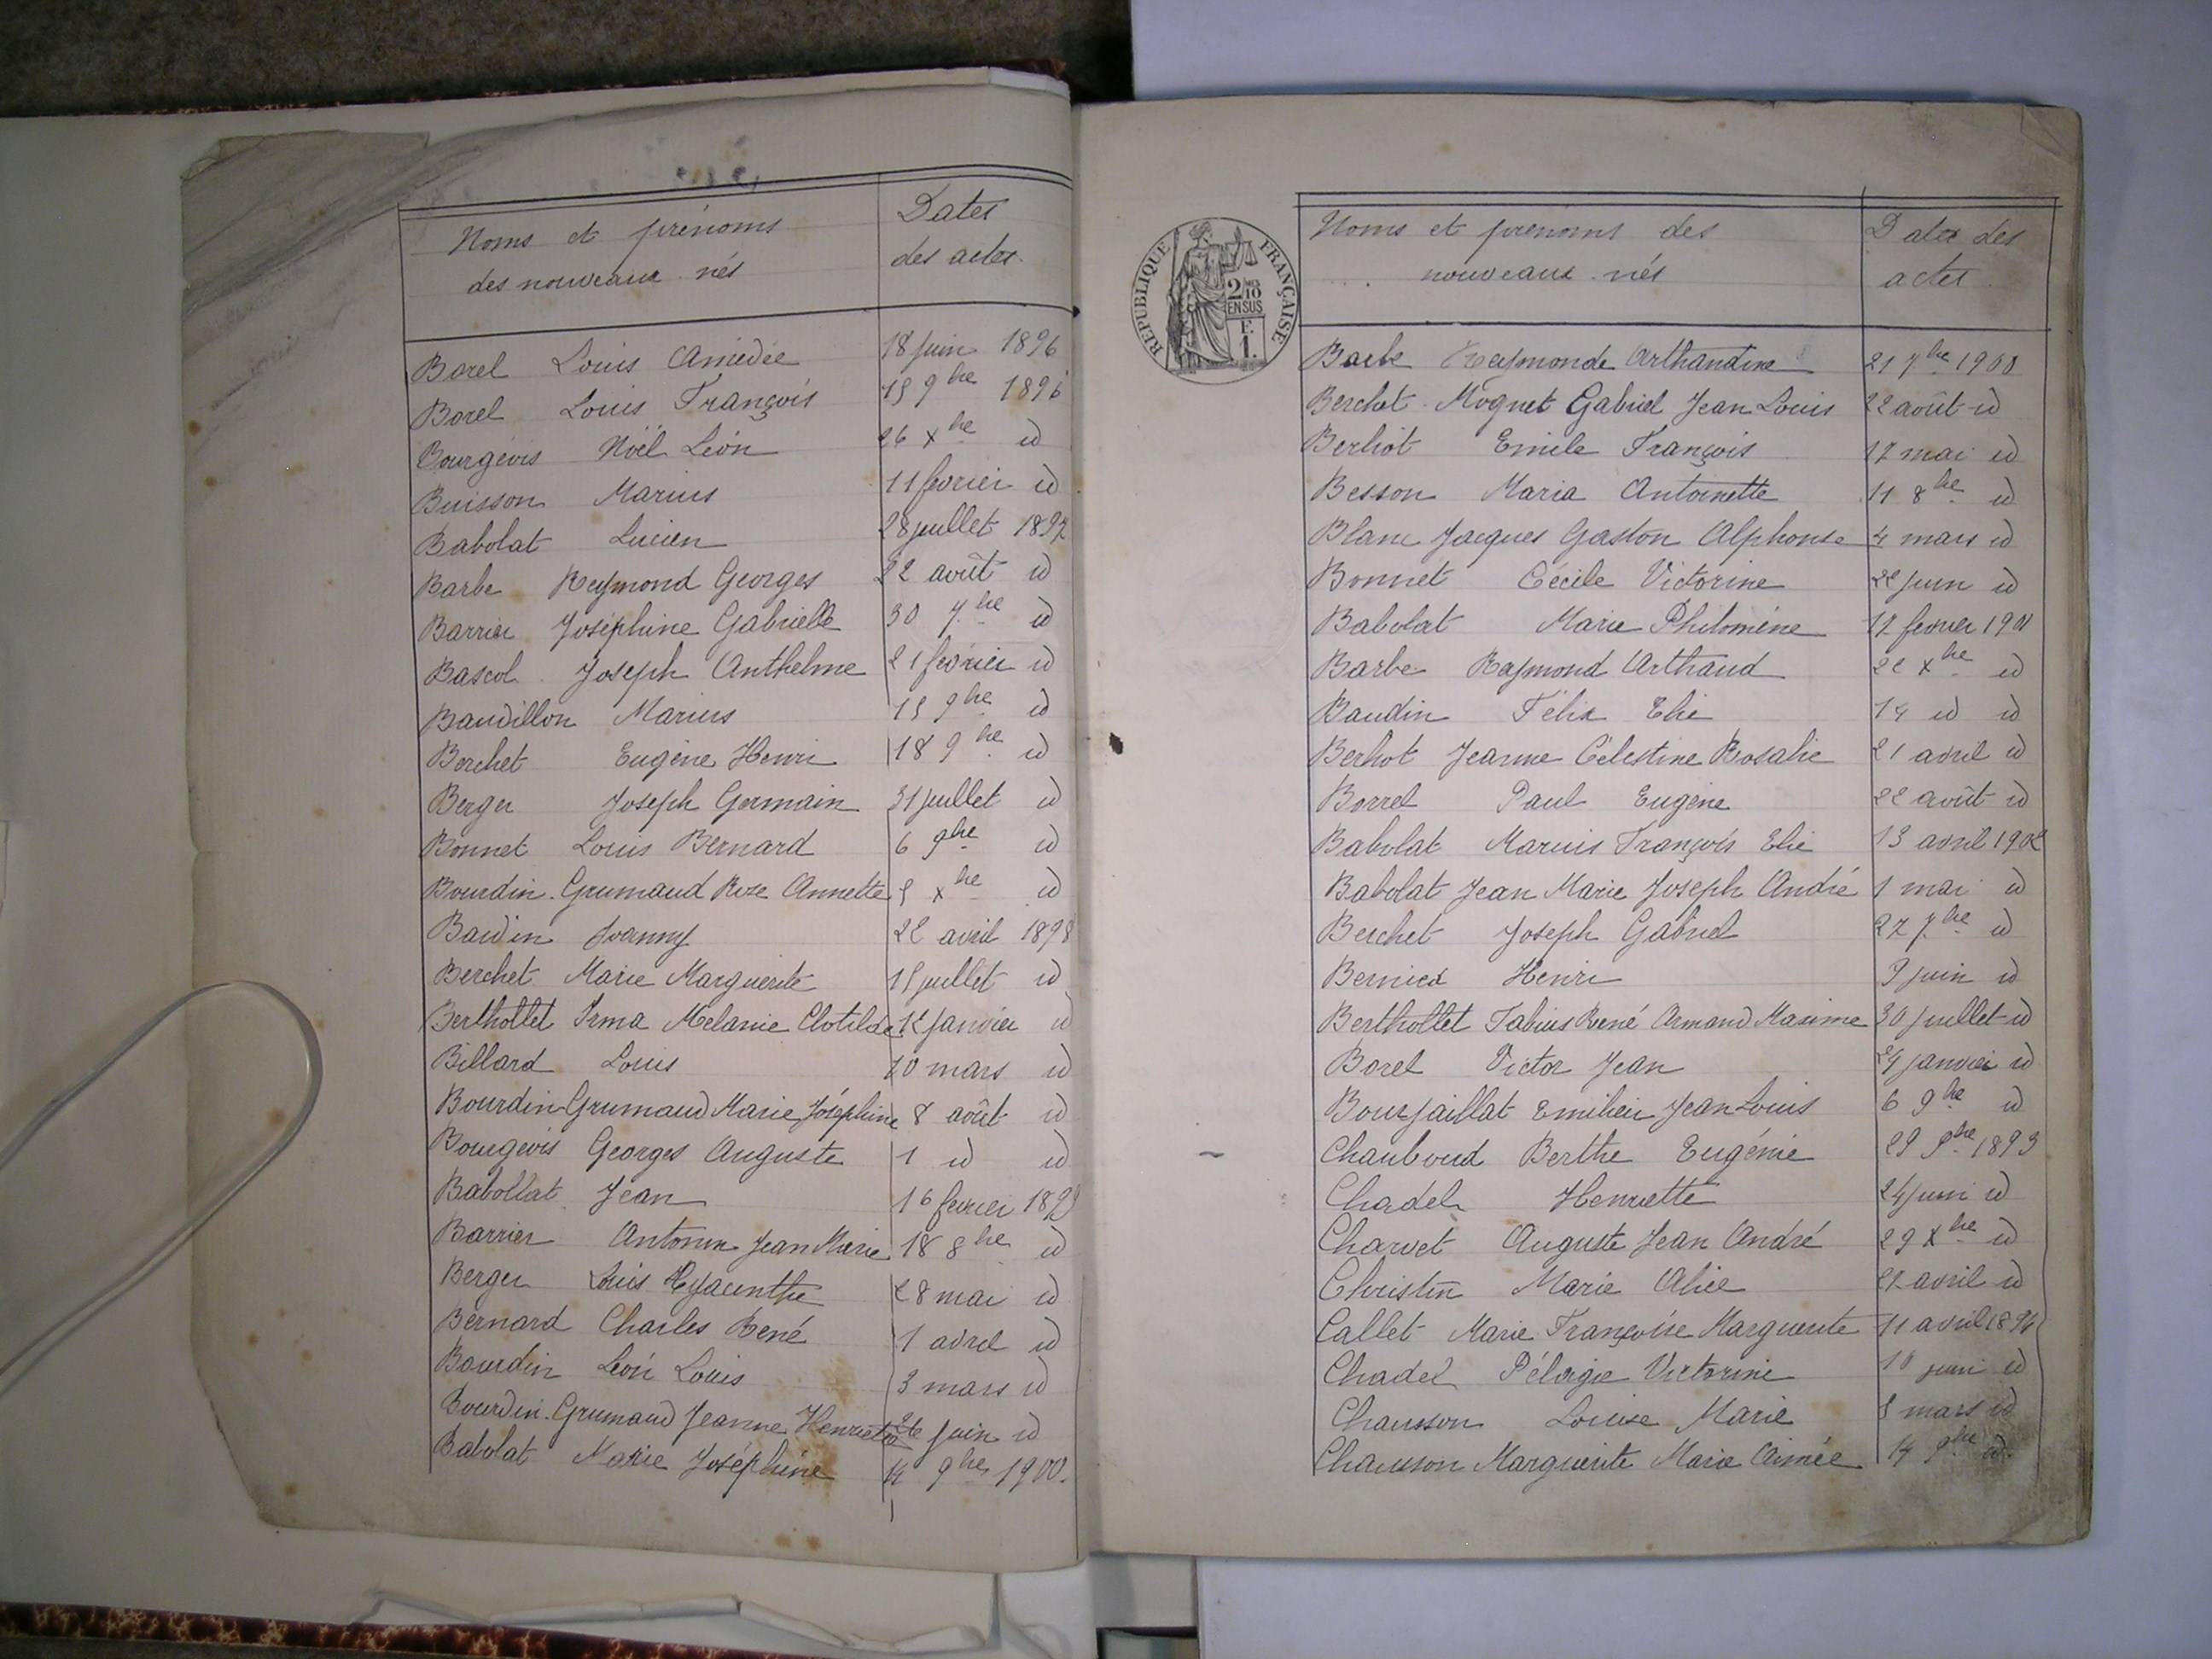 Noms et prénoms Dates
des nouveaux nés des actes
Borel Louis Amédée 18 juin 1896
Borel Louis François 15 9bre 1896
Bourgeois Noël Léon 26 xbre id
Buisson Marius 11 février id
Babolat Lucien 28 juillet 1897
Barbe Raymond Georges 22 août id
Barrier Joséphine Gabrielle 30 7bre id
Bascol Joseph Anthelme 21 février id
Baudillon Marius 15 9bre id
Berchet Eugène Henri 18 9bre id
Berger Joseph Germain 31 juillet id
Bonnet Louis Bernard 6 9bre id
Bourdin-Grumaud Rose Annette 5 xbre id
Baudin Joanny 22 avril 1898
Berchet Marie Marguerite 15 juillet id
Berthollet Irma Mélanie Clotilde 12 janvier id
Billard Louis 20 mars id
Bourdin-Grumaud Marie Joséphine 8 août id
Bourgeois Georges Auguste 1 id id
Babollat Jean 16 février 1899
Barrier Antonin Jean Marie 18 8bre id
Berger Louis Hyacinthe 28 mai id
Bernard Charles René 1 avril id
Bourdin Léon Louis 3 mars id
Bourdin-Grumaud Jeanne Henriette 26 juin id
Babolat Marie Joséphine 14 9bre 1900.
REPUBLIQUE FRANÇAISE
2/10
EN SUS
F.
1.
Noms et prénoms des Dates des
nouveaux nés actes
Barbe Raymonde Arthaudine 21 7bre 1900
Berchet-Moguet Gabriel Jean Louis 22 août id
Berliot Emile François 12 mai id
Besson Maria Antoinette 11 8bre id
Blanc Jacques Gaston Alphonse 4 mars id
Bonnet Cécile Victorine 22 juin id
Babolat Marie Philomène 12 février 1901
Barbe Raymond Arthaud 22 xbre id
Baudin Félix Elie 14 id id
Berliot Jeanne Célestine Rosalie 21 avril id
Borrel Paul Eugène 22 août id
Babolat Marius François Elie 13 avril 1902
Babolat Jean Marie Joseph André 1 mai id
Berchet Joseph Gabriel 27 7bre id
Henri 9 juin id
Berthollet Fabius René Armand Maxime 30 juillet id
Borel Victor Jean 24 janvier id
Bourjaillat Emilien Jean Louis 6 9bre id
Chauboud Berthe Eugénie 29 9bre 1893
Chadel Henriette 24 juin id
Charvet Auguste Jean André 29 xbre id
Christin Marie Alice 22 avril id
Callet Marie Françoise Marguerite 11 avril 1894
Chadel Pélagie Victorine 10 juin id
Chausson Louise Marie 8 mars id
Chausson Marguerite Marie Aimée 14 9bre id.